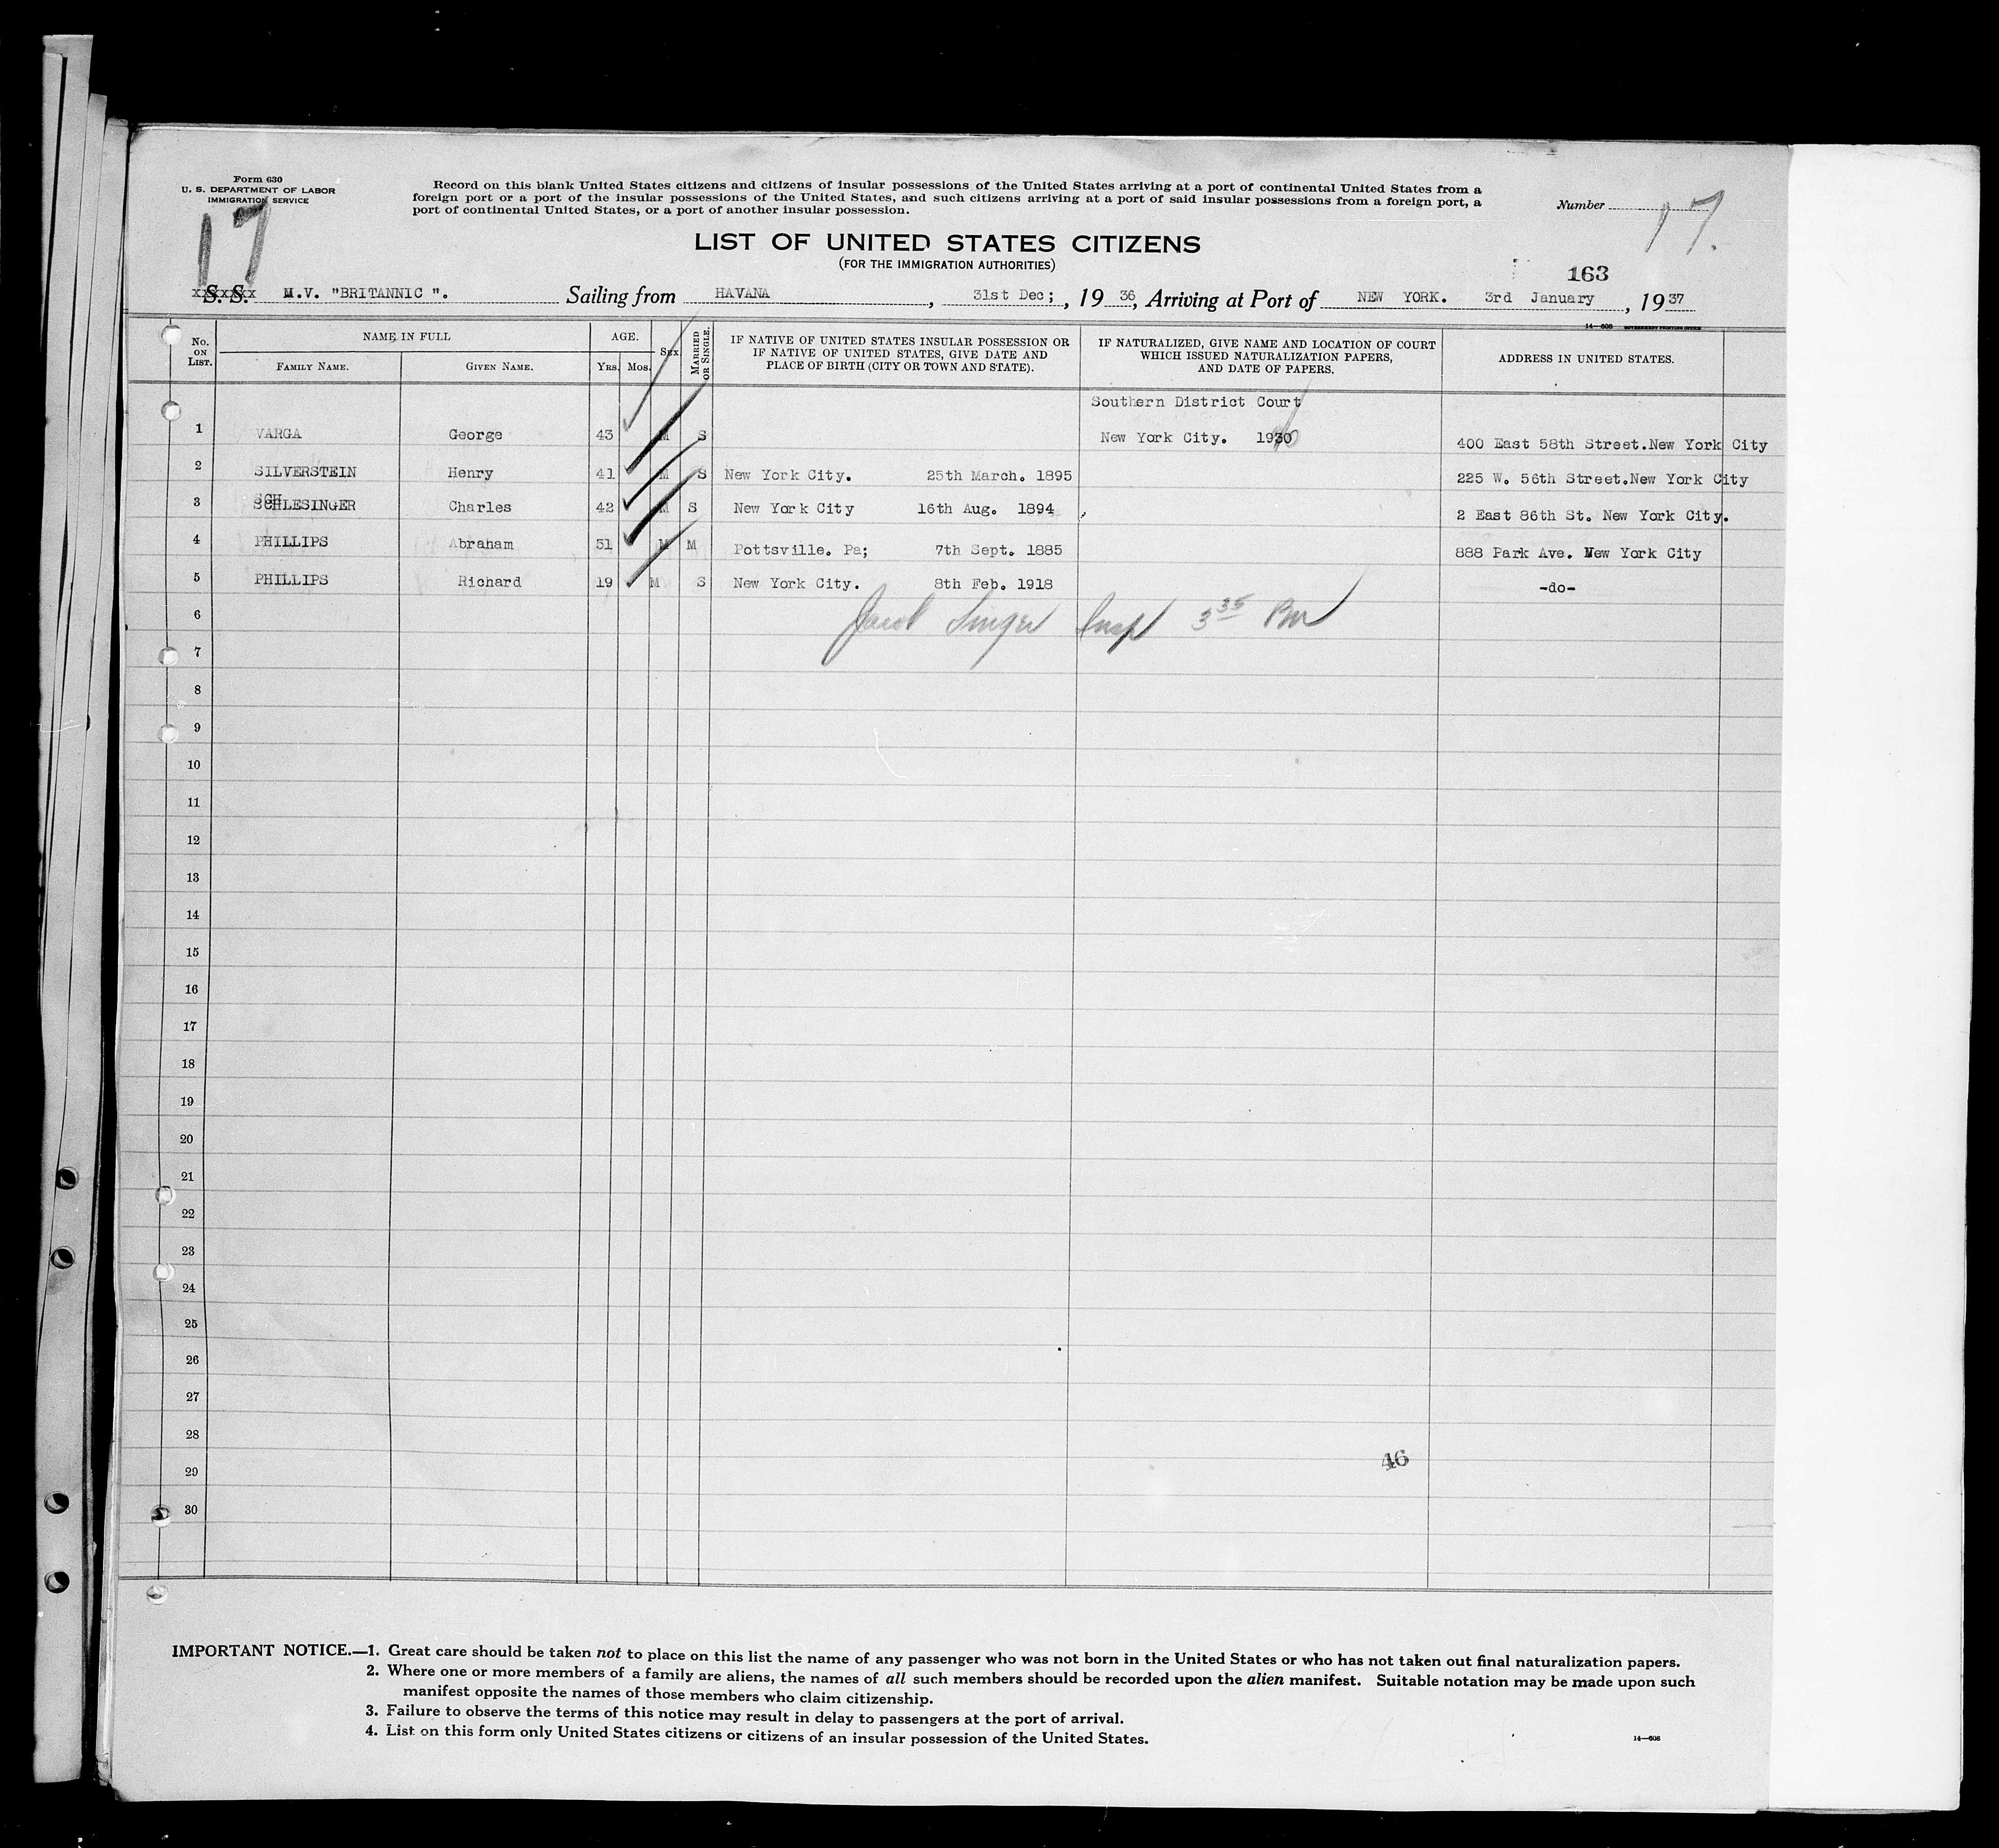 Form 630
U. S. DEPARTMENT OF LABOR
IMMIGRATION SERVICE
17
Record on this blank United States citizens and citizens of insular possessions of the United States arriving at a port of continental United States from a
foreign port or a port of the insular possessions of the United States, and such citizens arriving at a port of said insular possessions from a foreign port, a
port of continental United States, or a port of another insular possession.
Number 17.
LIST OF UNITED STATES CITIZENS
(FOR THE IMMIGRATION AUTHORITIES)
163
S. S. M.V. "BRITANNIC ". Sailing from HAVANA, 31st Dec; , 1936, Arriving at Port of NEW YORK. 3rd January , 1937
14—608 GOVERNMENT PRINTING OFFICE
No. ON LIST. NAME IN FULL AGE. Sex. MARRIED OR SINGLE. IF NATIVE OF UNITED STATES INSULAR POSSESSION OR IF NATIVE OF UNITED STATES, GIVE DATE AND PLACE OF BIRTH (CITY OR TOWN AND STATE). IF NATURALIZED, GIVE NAME AND LOCATION OF COURT WHICH ISSUED NATURALIZATION PAPERS, AND DATE OF PAPERS. ADDRESS IN UNITED STATES.
FAMILY NAME. GIVEN NAME. YRS. MOS.
Southern District Court
1 VARGA George 43 M S New York City. 1930 400 East 58th Street.New York City
2 SILVERSTEIN Henry 41 M S New York City. 25th March. 1895 225 W. 56th Street.New York City
3 SCHLESINGER Charles 42 M S New York City 16th Aug. 1894 2 East 86th St. New York City.
4 PHILLIPS Abraham 51 M M Pottsville. Pa; 7th Sept. 1885 888 Park Ave. New York City
5 PHILLIPS Richard 19 M S New York City. 8th Feb. 1918 -do-
6 Jacob Singer Insp 3 35 PM
7
8
9
10
11
12
13
14
15
16
17
18
19
20
21
22
23
24
25
26
27
28
46
29
30
IMPORTANT NOTICE.—1. Great care should be taken not to place on this list the name of any passenger who was not born in the United States or who has not taken out final naturalization papers.
2. Where one or more members of a family are aliens, the names of all such members should be recorded upon the alien manifest. Suitable notation may be made upon such
manifest opposite the names of those members who claim citizenship.
3. Failure to observe the terms of this notice may result in delay to passengers at the port of arrival.
4. List on this form only United States citizens or citizens of an insular possession of the United States.
14—608